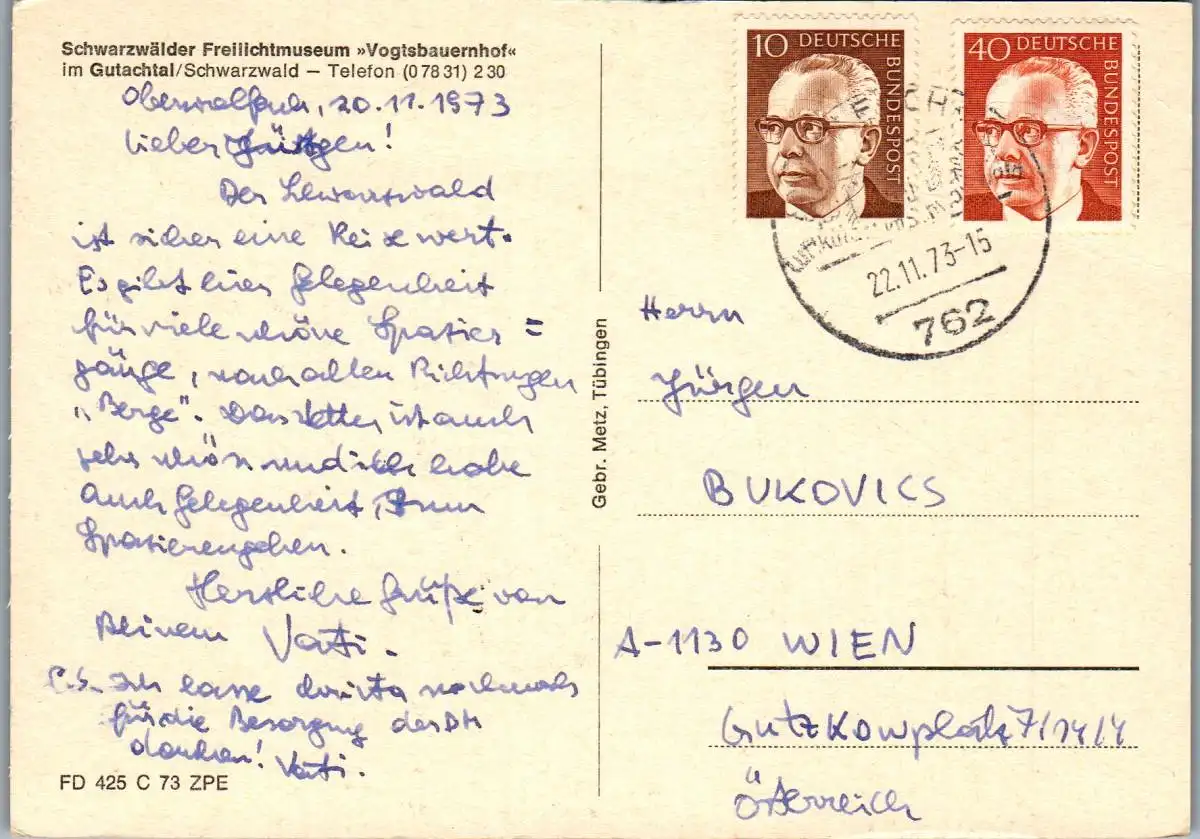 Schwarzwälder Freilichtmuseum »Vogtsbauernhof«
im Gutachtal/Schwarzwald – Telefon (0 78 31) 2 30
Oberwolfach, 20.11.1973
Lieber Jürgen!
Der Schwarzwald
ist sicher eine Reise wert.
Es gibt hier Gelegenheit
für viele schöne Spazier =
gänge, nach allen Richtungen
„Berge". Das Wetter ist auch
sehr schön und ich habe
auch Gelegenheit, zum
Spazierengehen.
Herzliche Grüße von
Deinem Vati.
P.S. Ich lasse nochmals
für die Besorgung der DM
danken! Vati.
FD 425 C 73 ZPE
Gebr. Metz, Tübingen
10 DEUTSCHE BUNDESPOST
40 DEUTSCHE BUNDESPOST
22.11.73-15
762
Herrn
Jürgen
BUKOVICS
A-1130 WIEN
Gutzkowplatz 7/14/4
Österreich